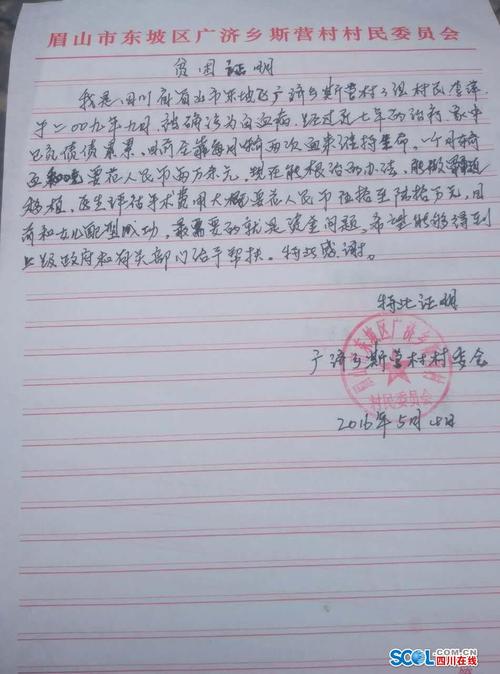 眉山市东坡区广济乡斯营村村民委员会
贫困证明
我是四川省眉山市东坡区广济乡斯营村3组村民
于二00九年九月,被确诊为白血病,经过近七年的治疗,家中
已负债债累累,目前在靠每月输两次血来维持生命,一个月输
血和吃要花人民币两万余元,现在能根治的办法,能做
移植,医生评估手术费用大概要花人民币伍拾至陆拾万元,目
前和女儿配型成功,最需要的就是资金问题,希望能够得到
上级政府和有关部门给予帮扶。特此感谢。
特此证明
广济乡斯营村村委会
村民委员会
2016年5月 日
SCOL.COM.CN
四川在线